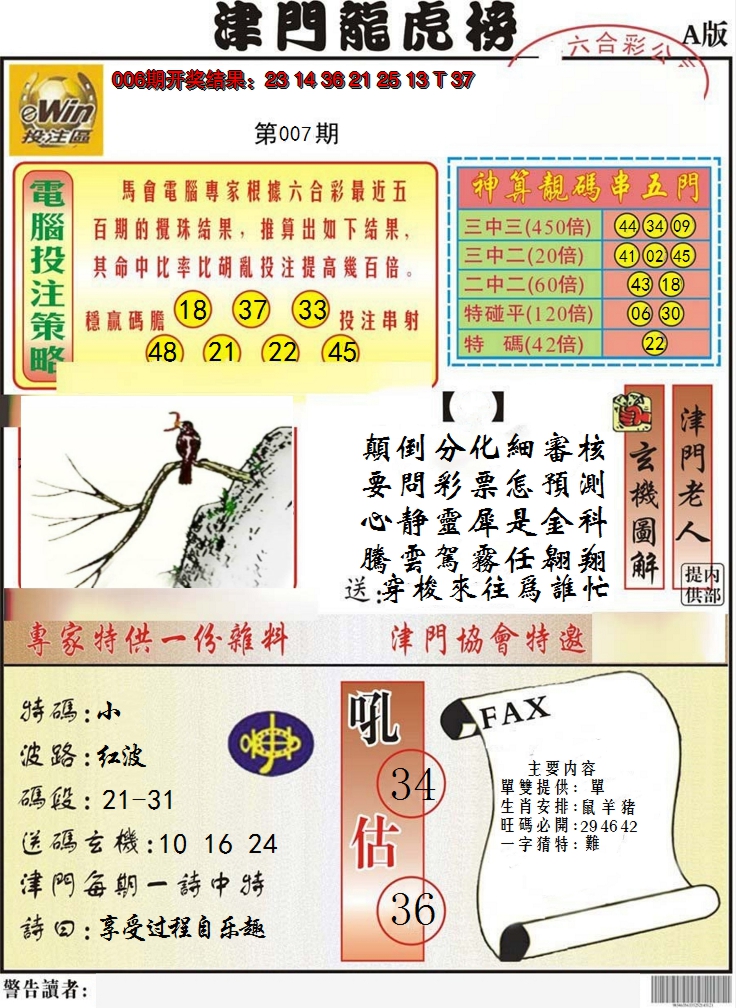 津門龍虎榜
A版
六合彩公
006期开奖结果：23 14 36 21 25 13 T 37
eWin
投注區
第007期
電腦投注策略
馬會電腦專家根據六合彩最近五
百期的攪珠结果，推算出如下结果，
其命中比率比胡亂投注提高幾百倍。
穩贏碼膽 18 37 33 投注串射
48 21 22 45
神算靚碼串五門
三中三(450倍) 44 34 09
三中二(20倍) 41 02 45
二中二(60倍) 43 18
特碰平(120倍) 06 30
特 碼(42倍) 22
【 】
顛倒分化細審核
要問彩票怎預測
心静靈犀是金科
騰雲駕霧任翱翔
送:穿梭來往爲誰忙
玄機圖解
津門老人
内部提供
專家特供一份雜料
津門協會特邀
特碼:小
波路:红波
碼段:21-31
送碼玄機:10 16 24
津門每期一詩中特
詩曰:享受过程自乐趣
吼
34
估
36
FAX
主要内容
單雙提供：單
生肖安排:鼠羊豬
旺碼必開:29 46 42
一字猜特：難
警告讀者：